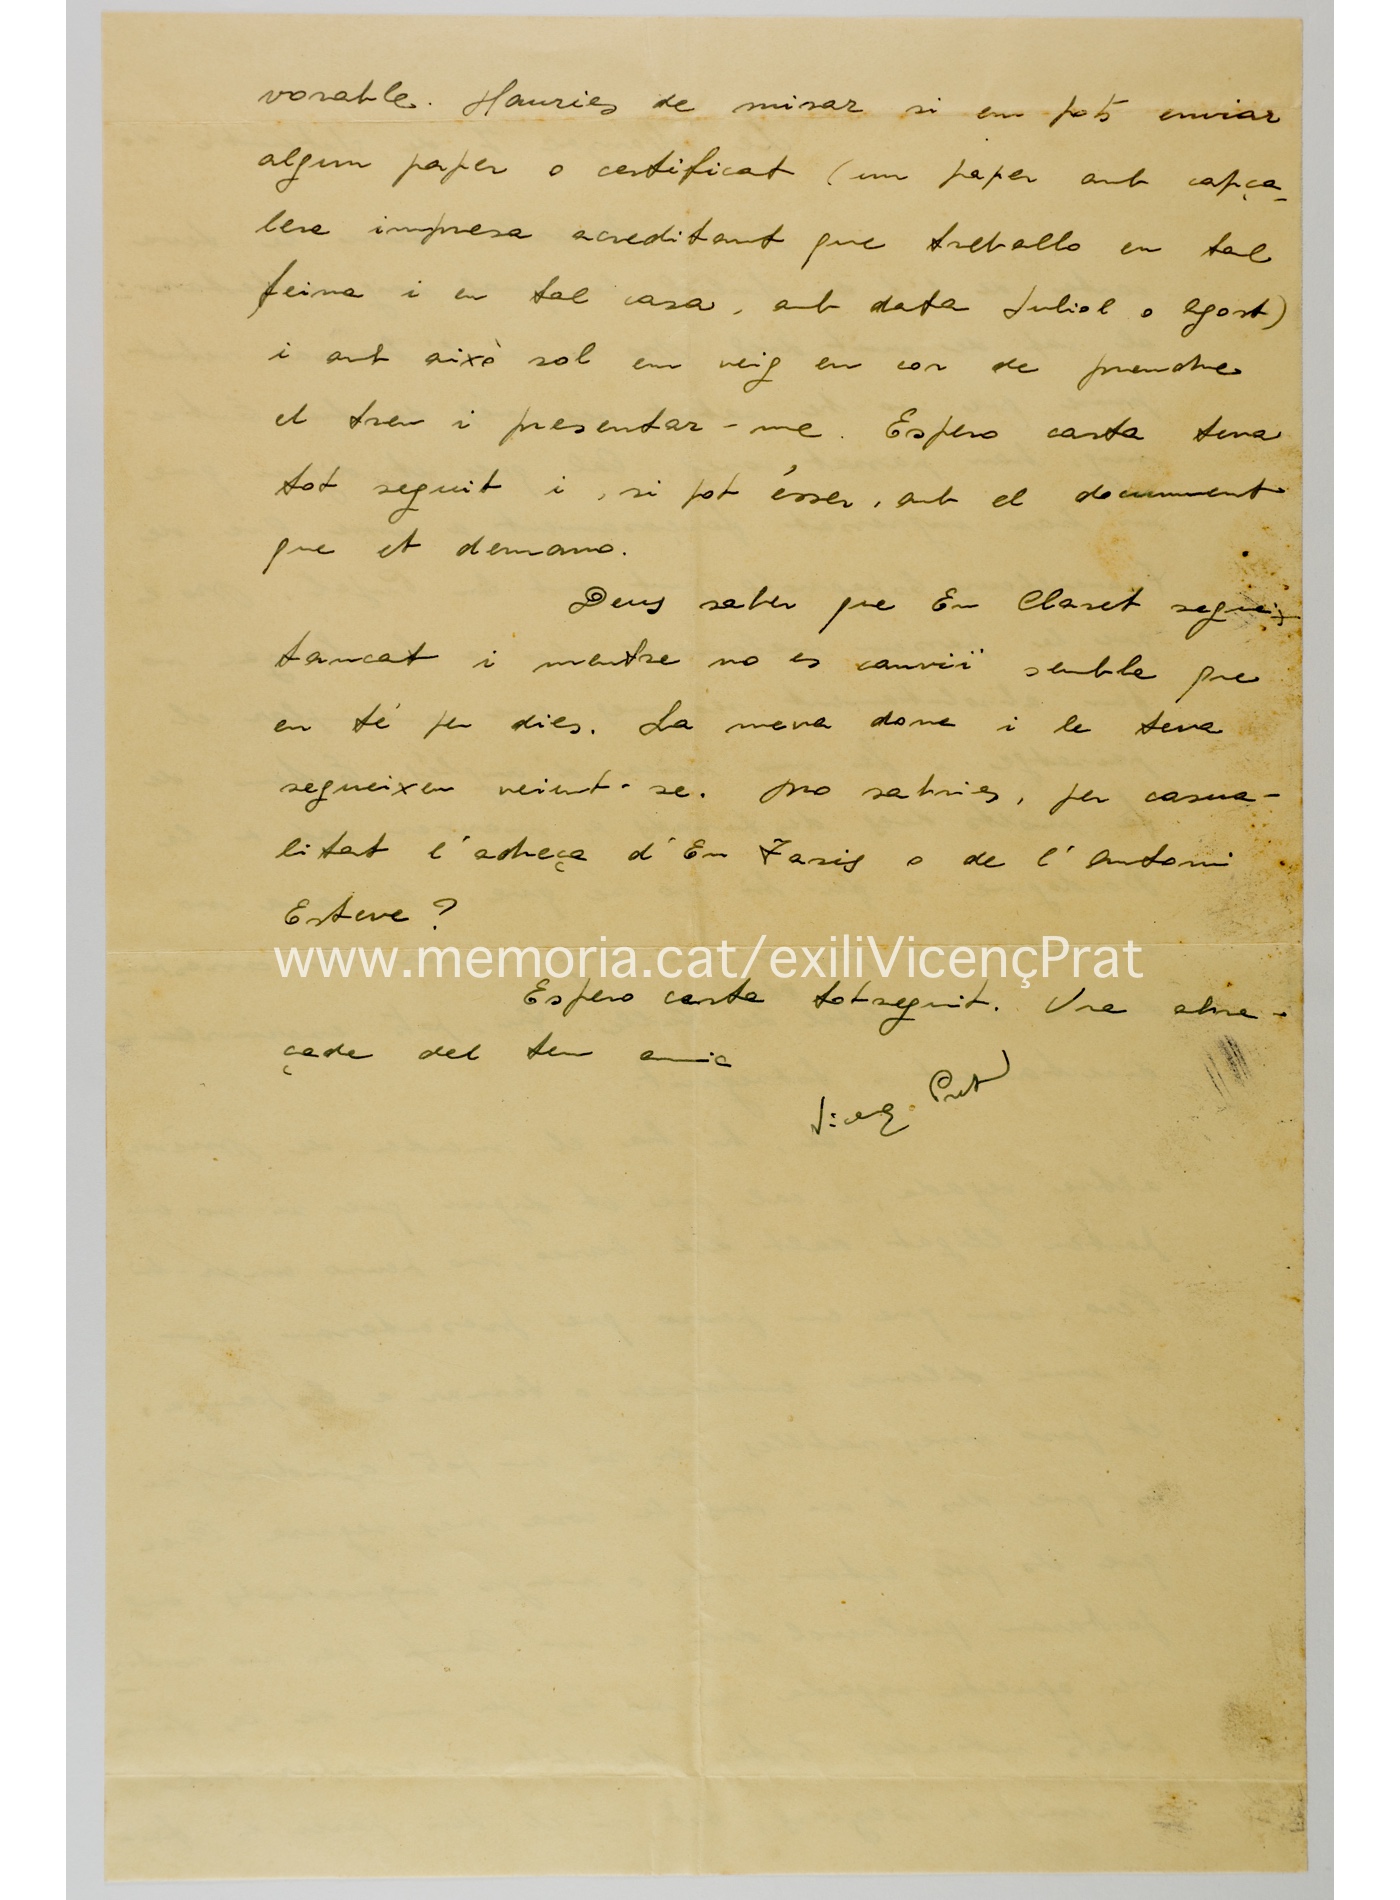 vorable. Hauries de mirar si em pots enviar
algun paper o certificat (un paper amb capça-
lera impresa acreditant que treballo en tal
feina i en tal casa, amb data Juliol o Agost)
i amb això sol em veig en cor de prendre
el tren i presentar-me. Espero carta teva
tot seguit i, si pot ésser, amb el document
que et demano.
Deus saber que En Claset segueix
tancat i mentre no es canviï sembla que
en té per dies. La meva dona i la teva
segueixen veient-se. No sabries, per casua-
litat l'adreça d'En Tasis o de l'Antoni
Esteve?
www.memoria.cat/exiliVicençPrat
Espero carta totseguit. Una abra-
çada del teu amic
Vicenç Prat